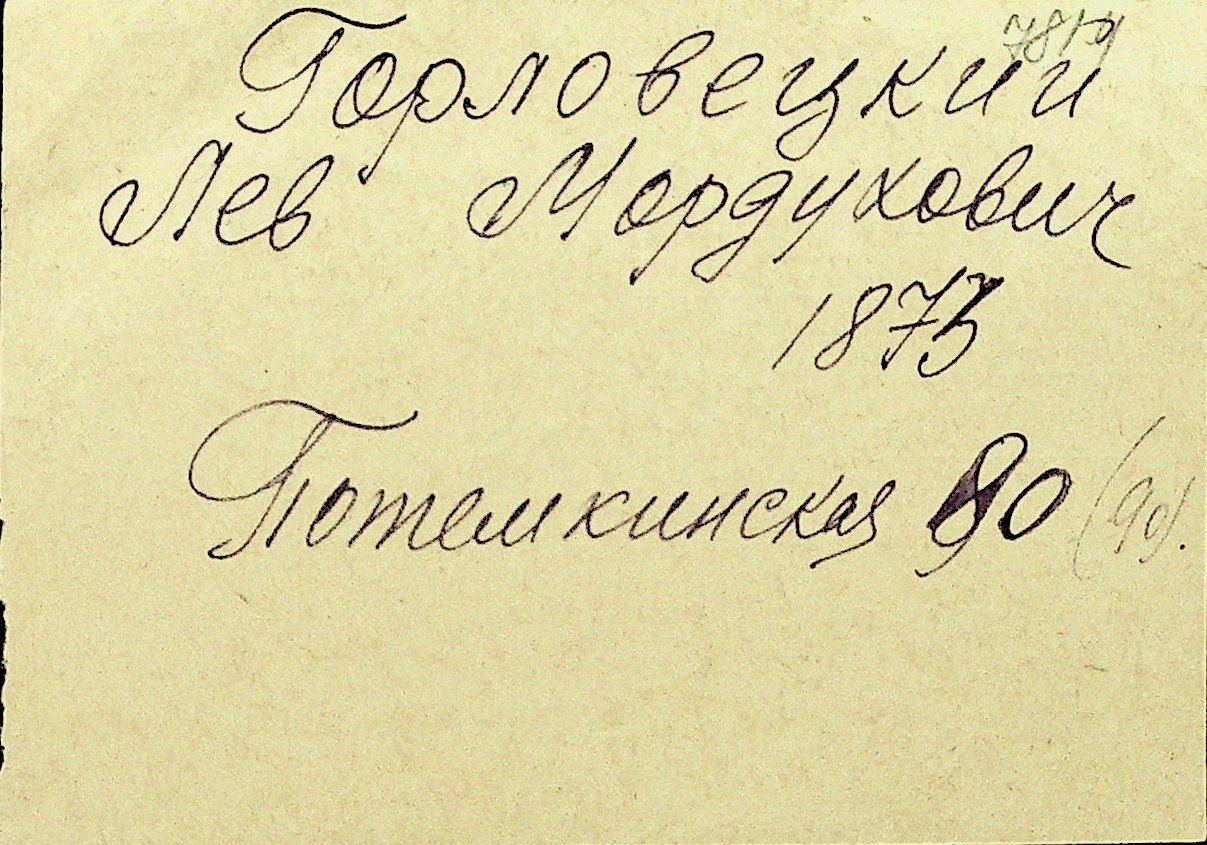 Горловецкий
Лев Мордухович
1873
Потемкинская 90 (90).